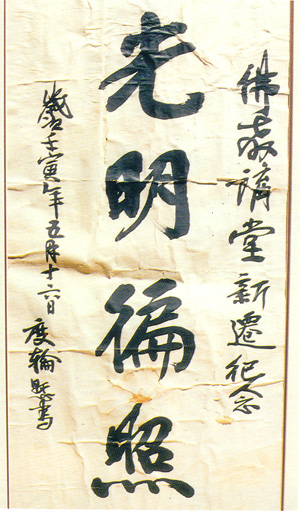 佛教講堂新遷紀念
光明徧照
歲次壬寅年五月十六日
度輪書